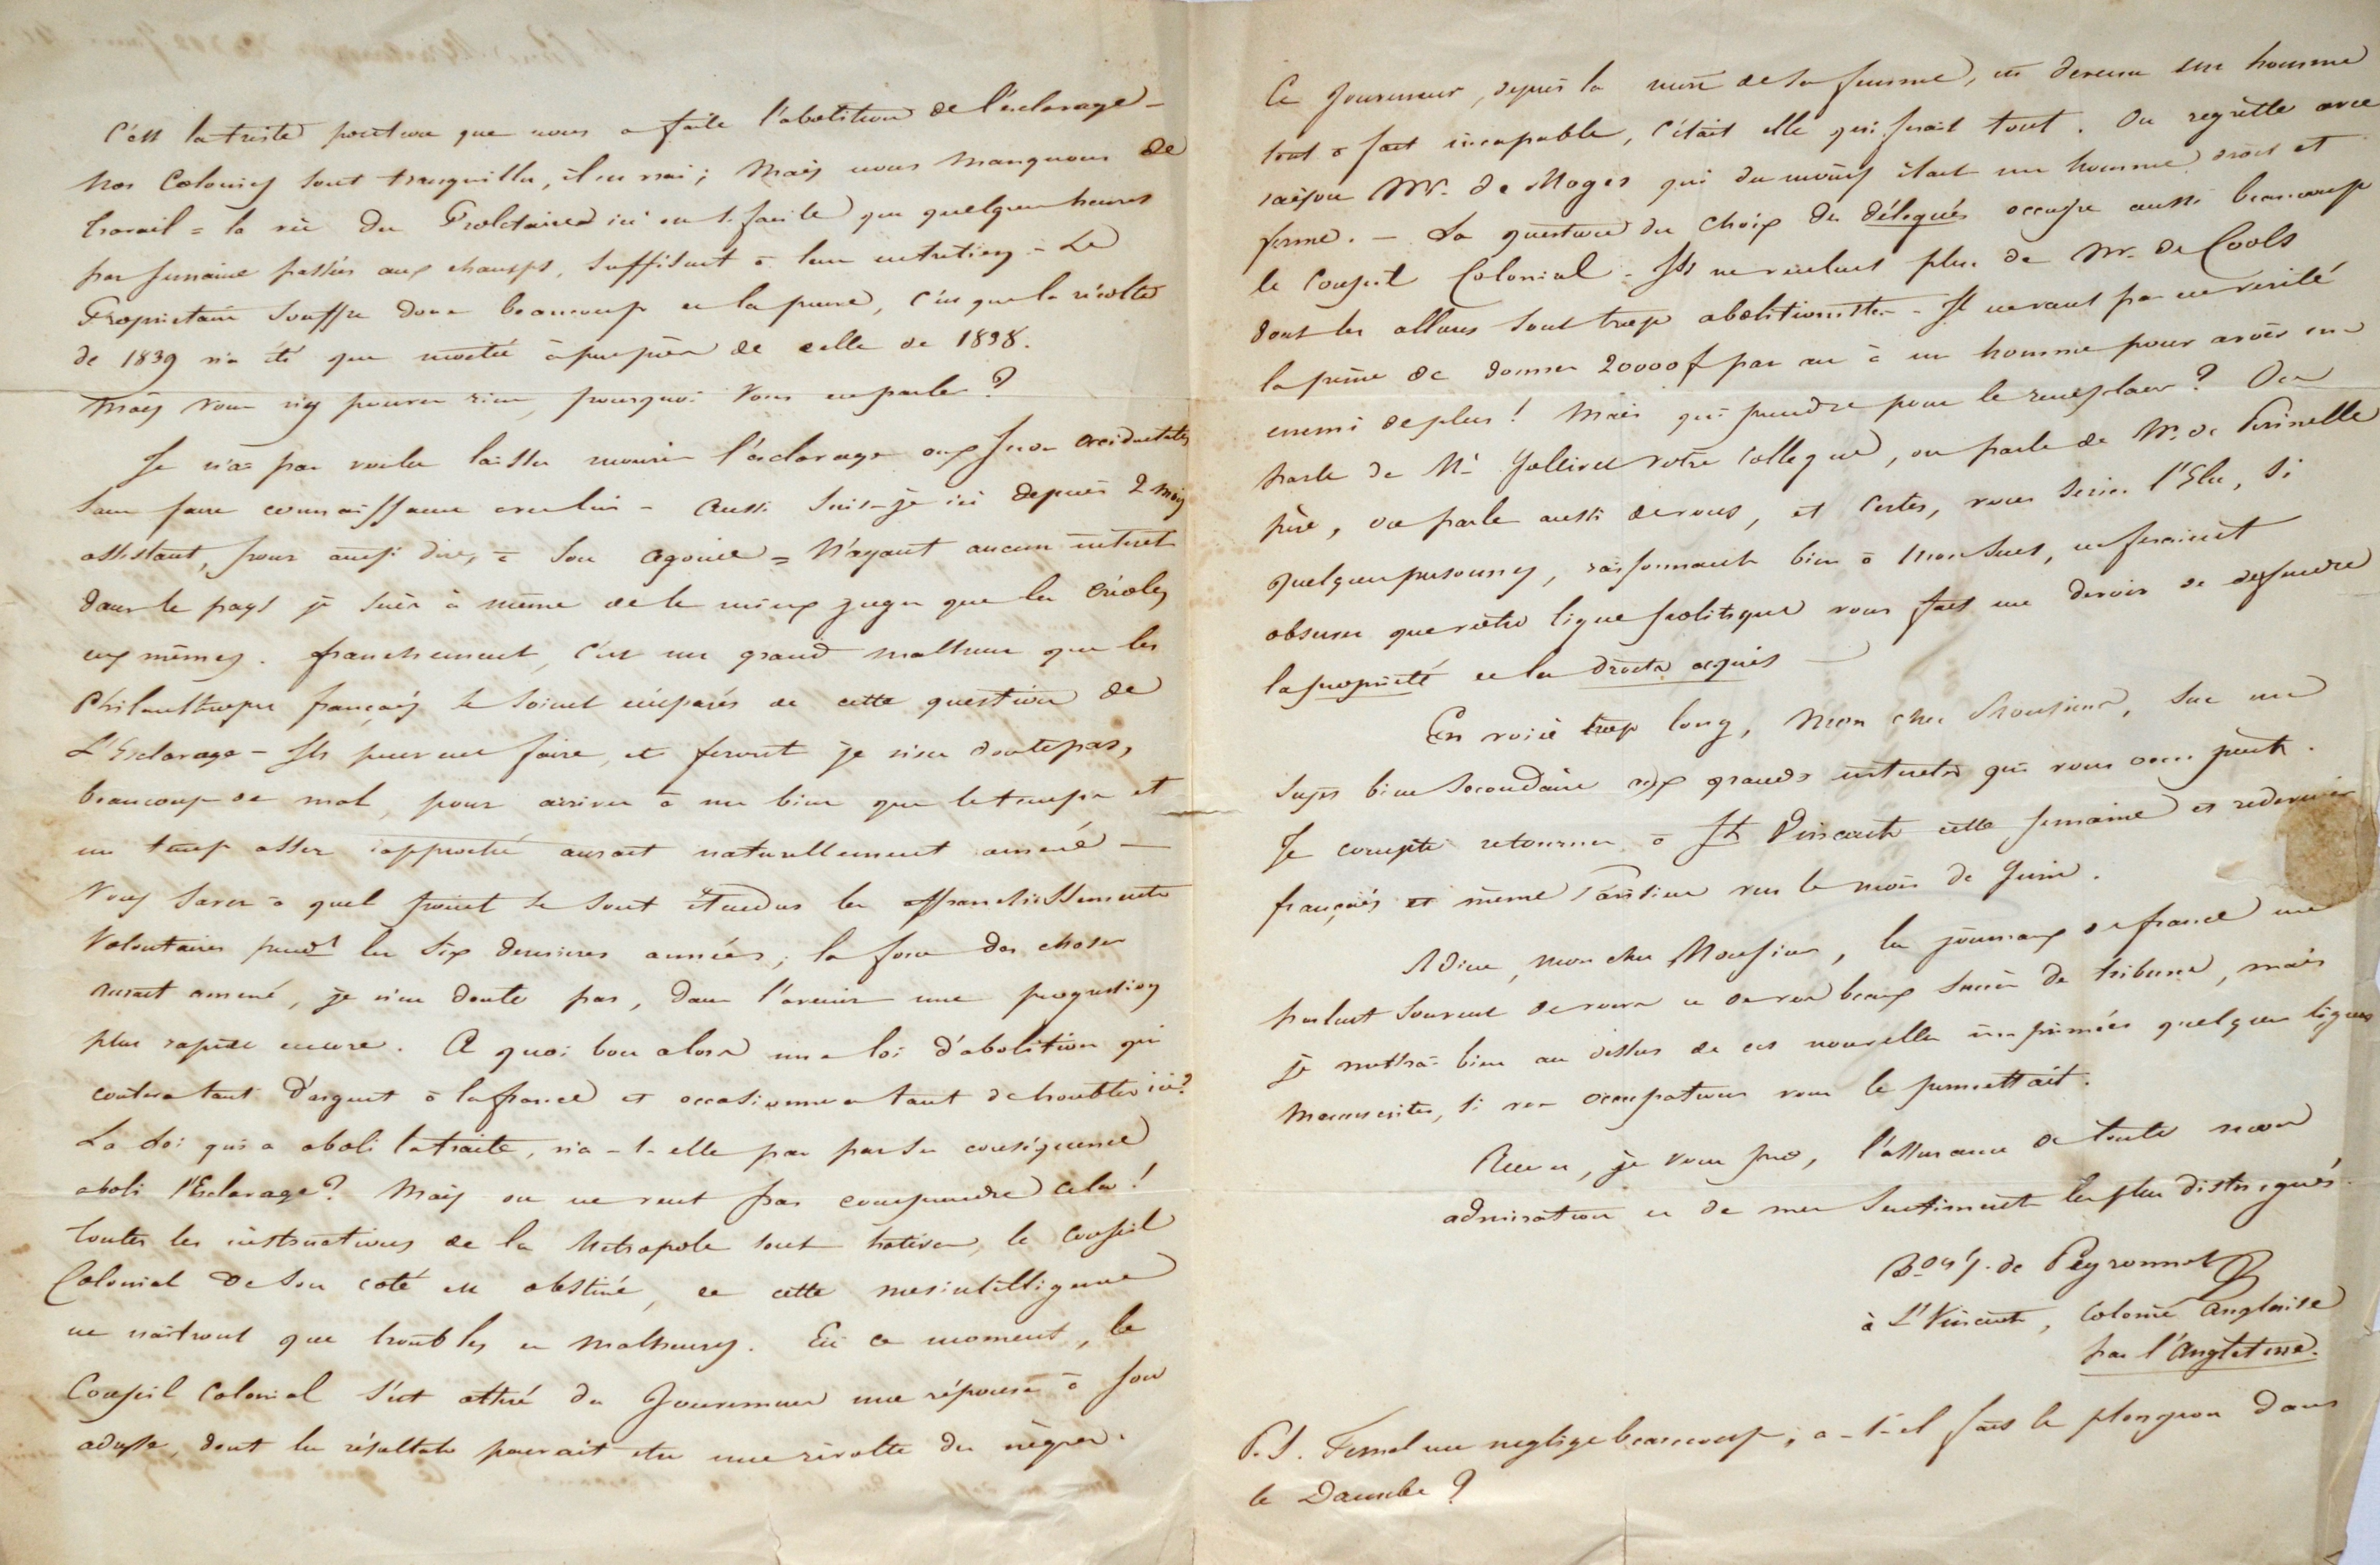 C'est la triste position que nous a faite l'abolition de l'esclavage –
Nos Colonies sont tranquilles, il est vrai ; Mais nous manquons de
travail = la vie du Prolétaire ici est si facile que quelques heures
par semaine passées aux champs, suffisent à leur entretien – Le
Propriétaire souffre donc beaucoup et la preuve, c'est que la récolte
de 1839 n'a été que moitié à peu près de celle de 1838.
Mais vous n'y pouvez rien, pourquoi vous en parler ?
Je n'ai pas voulu laisser mourir l'esclavage aux Indes occidentales
sans faire connaissance avec lui – Aussi suis-je ici depuis 2 mois
assistant, pour ainsi dire, à son agonie = N'ayant aucun intérêt
dans le pays je suis à même de le mieux juger que les Créoles
eux mêmes. franchement, c'est un grand malheur que les
Philanthropes français se soient emparés de cette question de
L'Esclavage – Ils peuvent faire, et feront je n'en doute pas,
beaucoup de mal, pour arriver à un bien que le temps et
un temps assez rapproché aurait naturellement amené –
Vous savez à quel point se sont étendus les affranchissements
Volontaires pendt les six dernières années ; la force des choses
aurait amené, je n'en doute pas, dans l'avenir une progression
plus rapide encore. A quoi bon alors une loi d'abolition qui
coutera tant d'argent à la france et occasionnera tant de troubles ici ?
La Loi qui a aboli la traite, n'a-t-elle pas par sa conséquence
aboli l'Esclavage ? Mais on ne veut pas comprendre cela !
toutes les instructions de la Métropole sont hatives, le Conseil
Colonial de son coté est obstiné, de cette mésintelligence
ne naitront que troubles et malheurs. En ce moment, le
Conseil Colonial s'est attiré du Gouverneur une réponse à son
adresse, dont les résultats pourrait être une révolte des nègres.
Ce Gouverneur, depuis la mort de sa femme, est devenu un homme
tout à fait incapable, c'était elle qui faisait tout. On regrette avec
raison Mr. de Moges qui du moins était un homme droit et
ferme. – La question du choix des délégués occupe aussi beaucoup
le Conseil Colonial – Ils ne veulent plus de Mr. de Cools
dont les allures sont trop abolitionistes – Il ne vaut pas en vérité
la peine de donner 20000f par an à un homme pour avoir un
ennemi de plus ! Mais qui prendre pour le remplacer ? On
parle de Mr Jollivet votre collegue, on parle de Mr. de Perinelle
père, on parle aussi de vous, et certes, vous seriez l'Elu, si
quelques personnes, raisonnant bien à mon sens, ne
observer que votre ligne politique vous fait un devoir de défendre
la propriété et les droits acquis –
En voici trop long, mon cher Monsieur, sur un
sujet bien secondaire aux grands intérêts qui vous occupent.
Je compte retourner à St Vincent cette semaine et redevenir
français et même Parisien vers le mois de Juin.
Adieu, mon cher Monsieur, les journaux de france me
parlent souvent de vous et de vos beaux succès de tribune, mais
je mettrai bien au dessus de ces nouvelles imprimées quelques lignes
manuscrites, si vos occupations vous le permettait.
Recevez, je vous prie, l'assurance de toute mon
admiration et de mes sentiments les plus distingués.
de Peyronnet
à St Vincent, Colonie Anglaise
par l'Angleterre.
P.S. me neglige beaucoup ; a-t-il fait le plongeon dans
le Danube ?